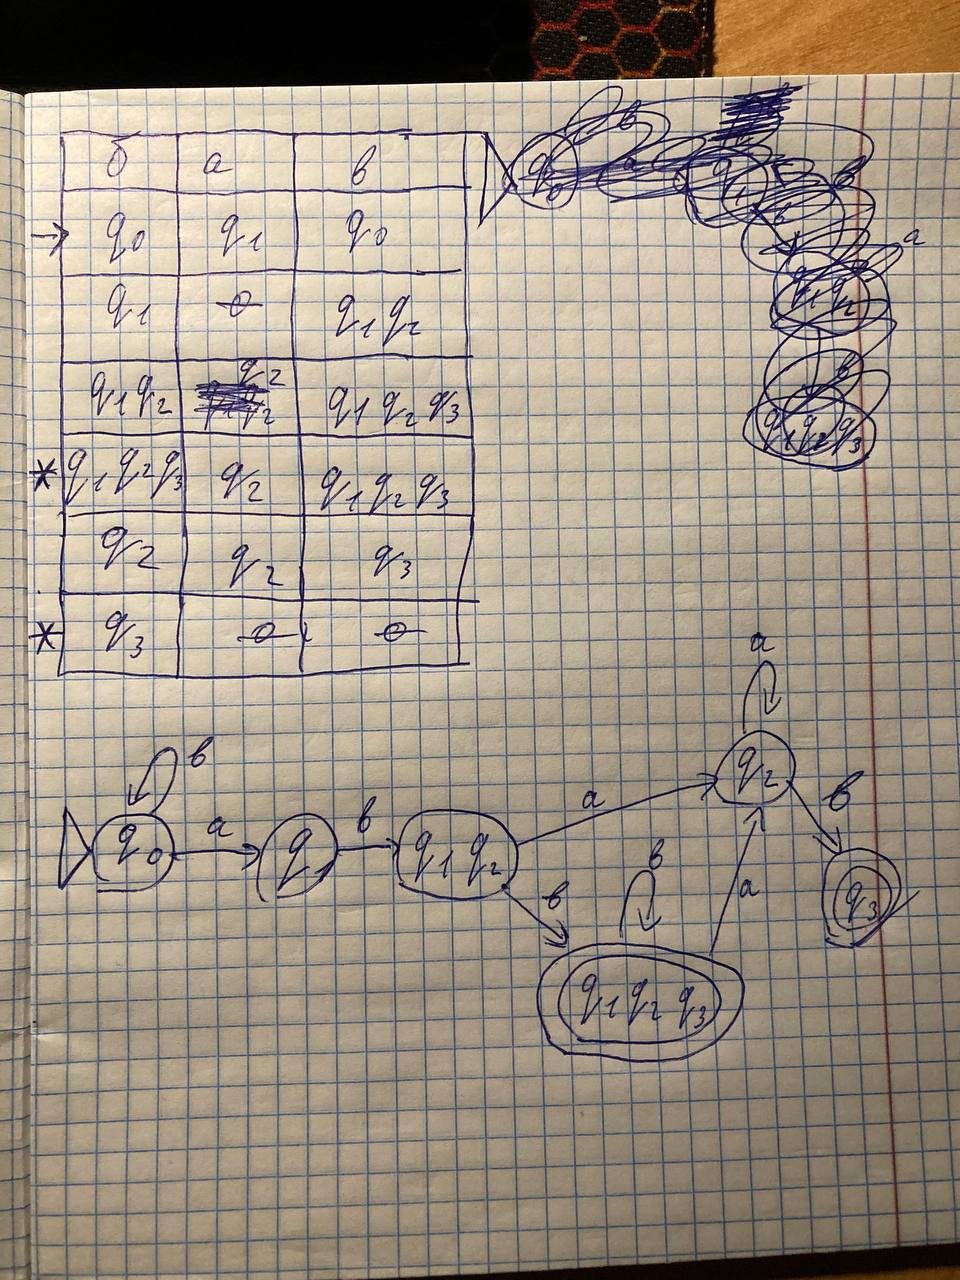 б a в
→ q0 q1 q0
q1 ∅ q1 q2
q1 q2 q2 q1 q2 q3
* q1 q2 q3 q2 q1 q2 q3
q2 q2 q3
* q3 ∅ ∅
q0 a q1 в
в
a
q1 q2
в
q1 q2 q3
a
в
a q2
q0 a q1 в q1 q2 в
в
a q3
в
q1 q2 q3